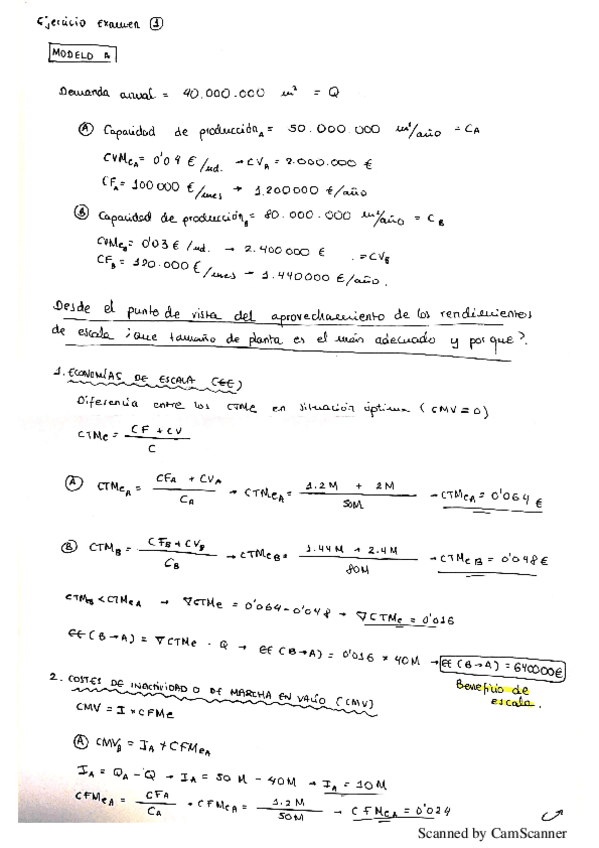 Ejercicio examen ①
MODELO A
Demanda anual = 40.000.000 m² = Q
Ⓐ Capacidad de producción_A = 50.000.000 m²/año = C_A
CVMe_A = 0'04 €/ud. → CV_A = 2.000.000 €
CF_A = 100000 €/mes → 1.200000 €/año
Ⓑ Capacidad de producción_B = 80.000.000 m²/año = C_B
CVMe_B = 0'03 €/ud. → 2.400000 € = CV_B
CF_B = 120.000 €/mes → 1.440000 €/año.
Desde el punto de vista del aprovechamiento de los rendimientos
de escala ¿que tamaño de planta es el más adecuado y por que?.
1. ECONOMÍAS DE ESCALA (EE)
Diferencia entre los CTMe en situación óptima (CMV=0)
CTMe = CF + CV / C
Ⓐ CTMe_A = CF_A + CV_A / C_A → CTMe_A = 1.2M + 2M / 50M → CTMe_A = 0'064 €
Ⓑ CTM_B = CF_B + CV_B / C_B → CTMe_B = 1.44M + 2.4M / 80M → CTMe_B = 0'048 €
CTM_B < CTMe_A → ∇CTMe = 0'064 - 0'048 → ∇CTMe = 0'016
EE (B→A) = ∇CTMe · Q → EE (B→A) = 0'016 × 40M → EE (B→A) = 640000 €
Beneficio de
escala.
2. COSTES DE INACTIVIDAD O DE MARCHA EN VACÍO (CMV)
CMV = I × CFMe
Ⓐ CMV_B = I_A × CFMe_A
I_A = Q_A - Q → I_A = 50M - 40M → I_A = 10M
CFMe_A = CF_A / C_A → CFMe_A = 1.2M / 50M → CFMe_A = 0'024
Scanned by CamScanner